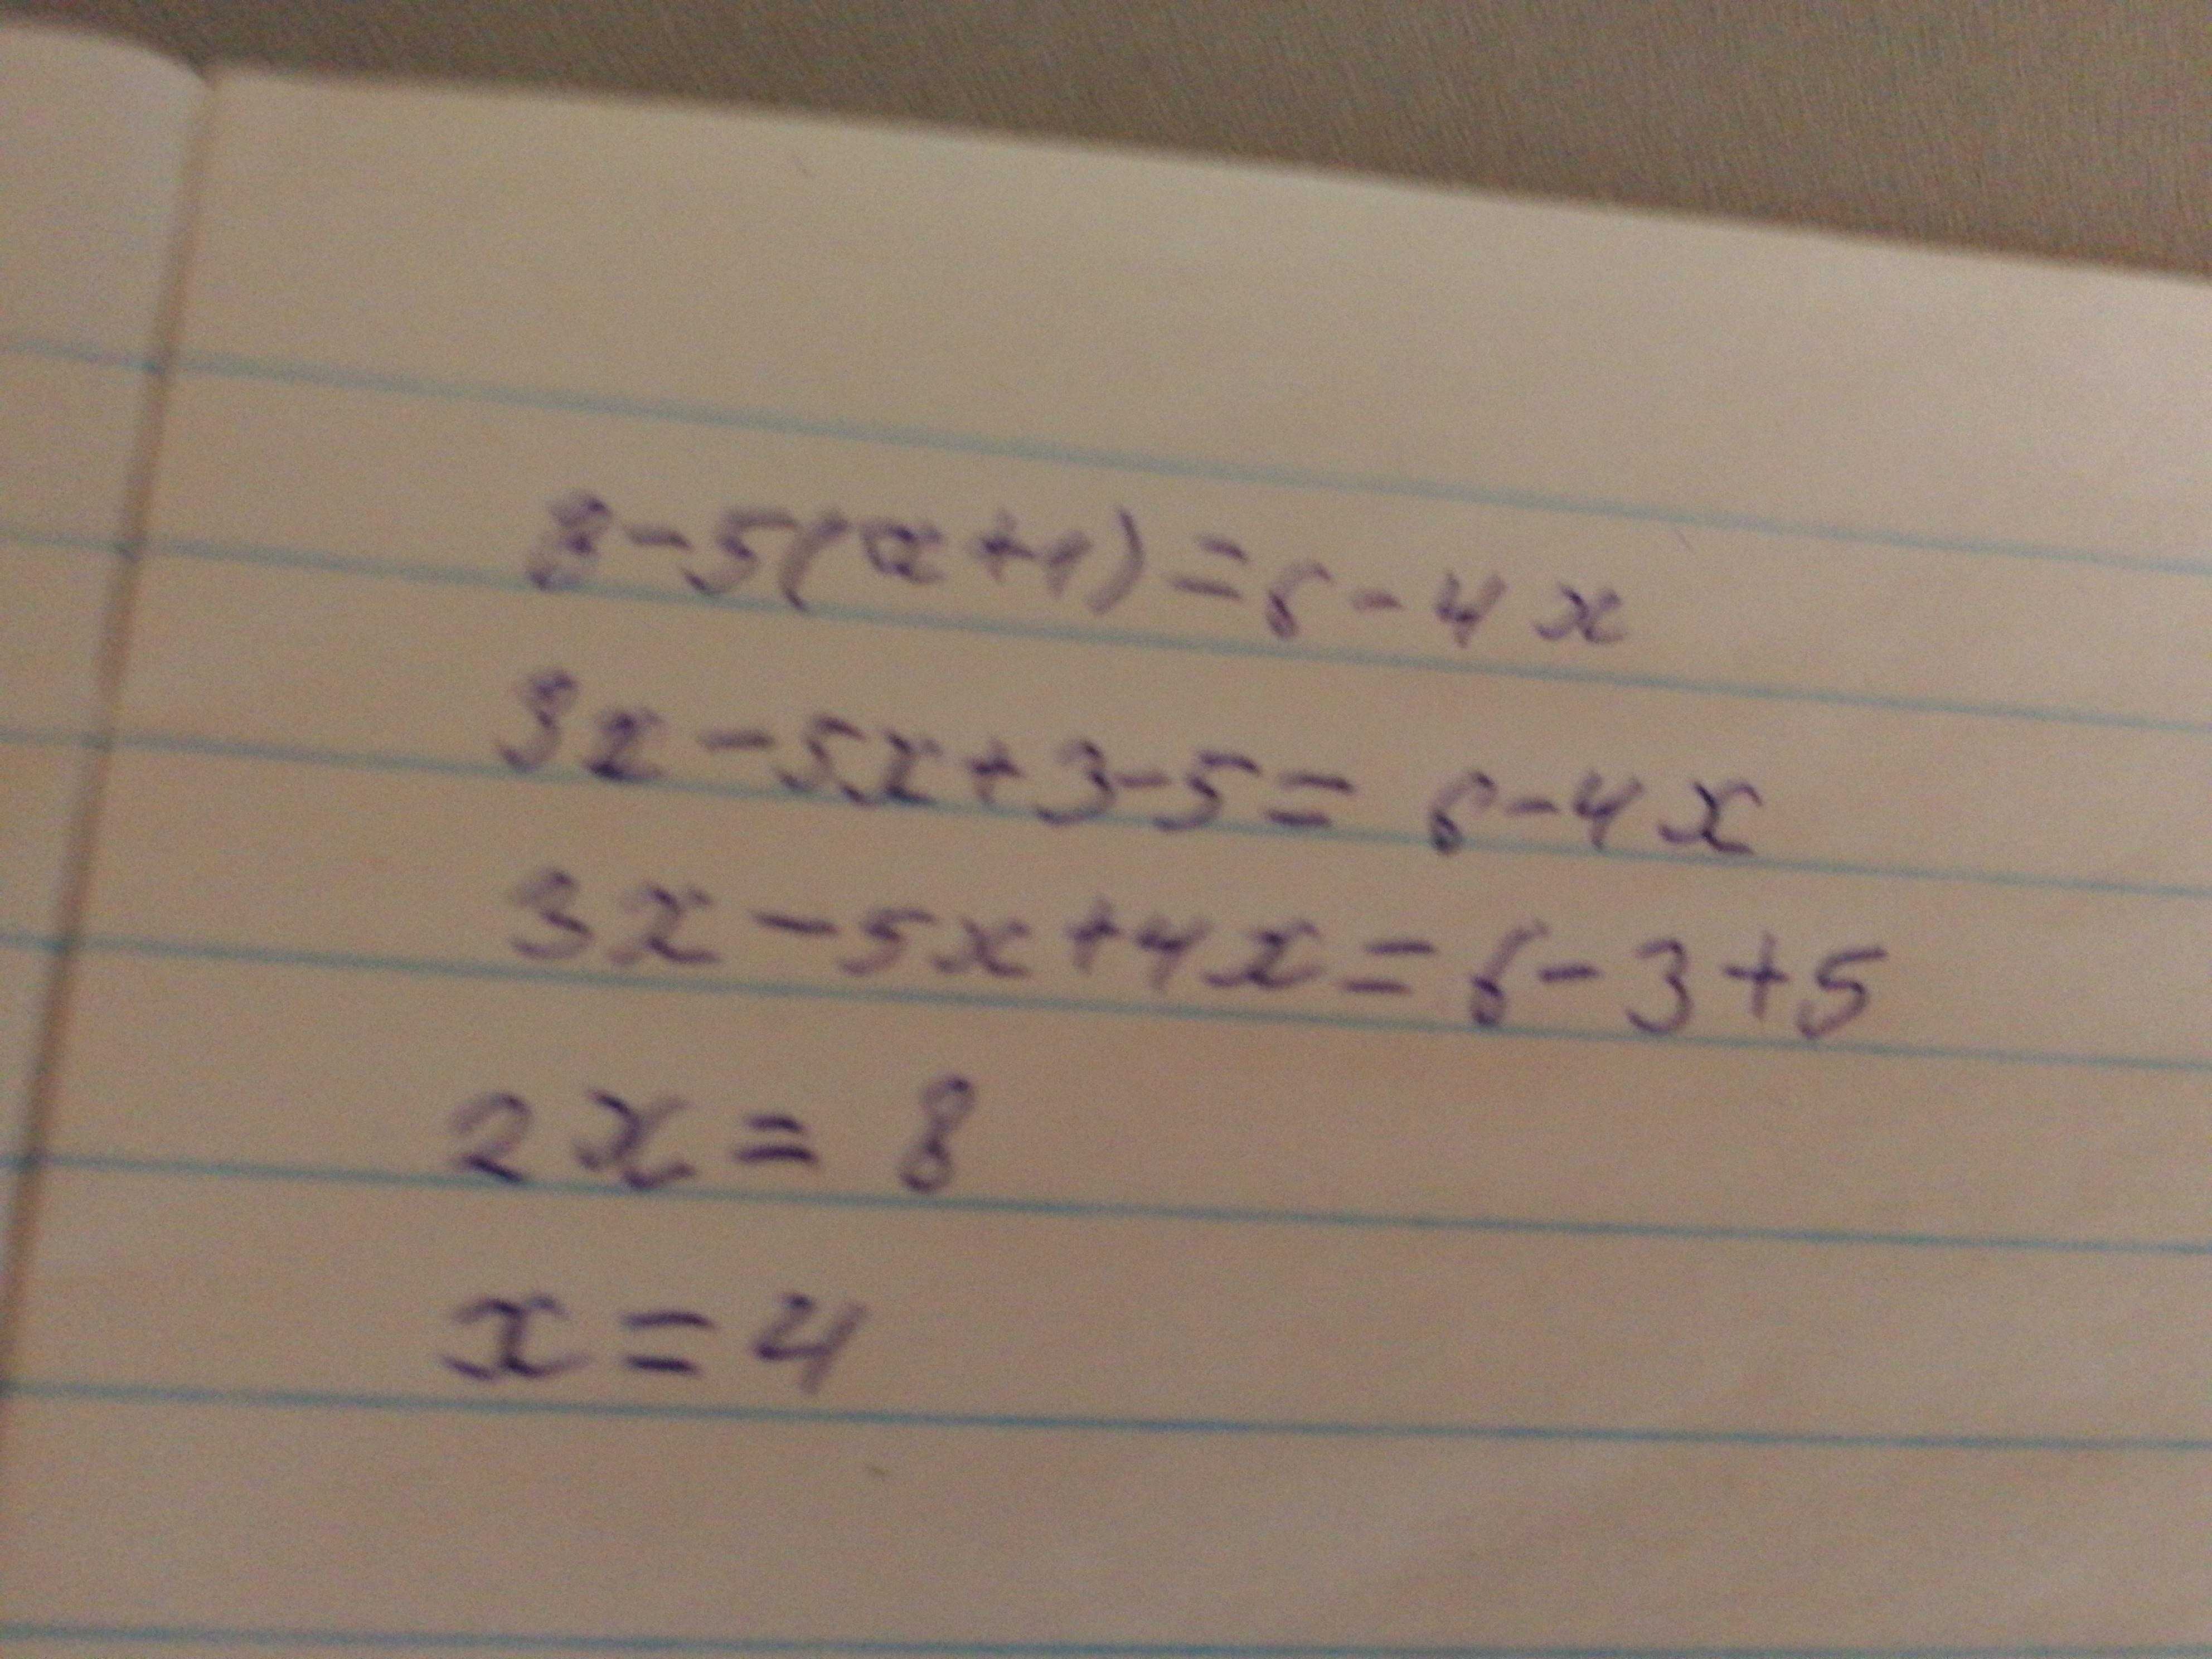 8-5(x+1)=6-4x
3x-5x+3-5=6-4x
3x-5x+4x=6-3+5
2x=8
x=4